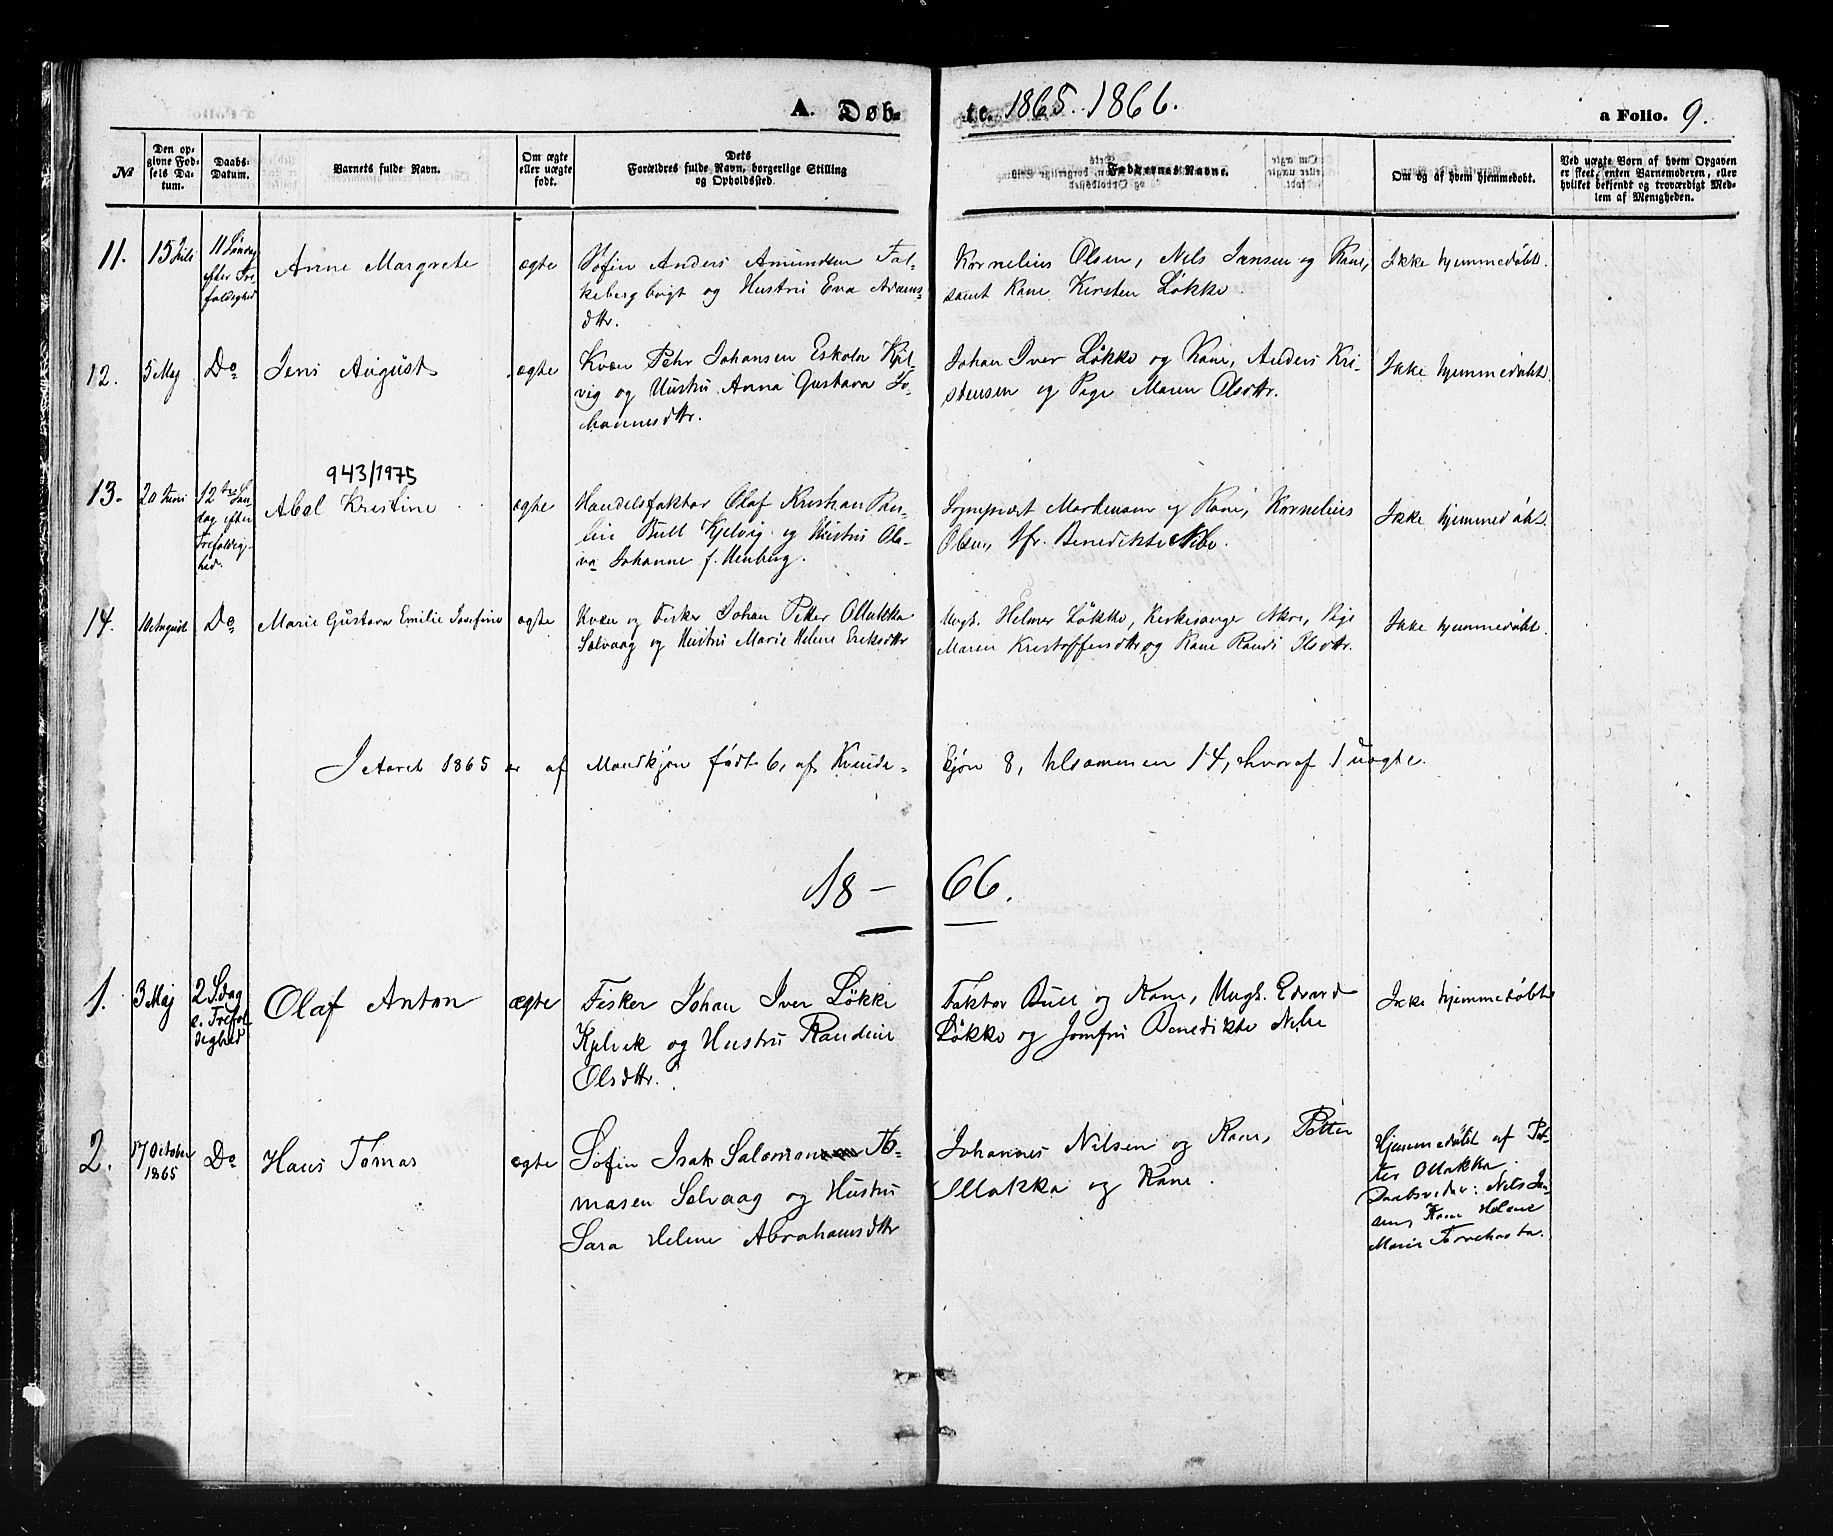 A. Døb-
te. 1865. 1866.
a Folio. 9.
№
Den op-
givne Fød-
sels Da-
tum.
Daabs-
Datum.
Barnets fulde Navn.
Om ægte
eller uægte
født.
Dets
Forældres fulde Navn, borgerlige Stilling
og Opholdssted.
Faddernes Navne.
Om og af hvem hjemmedøbt.
Ved uægte Børn af hvem Opgaven
er skeet, enten Barnemoderen, eller
hvilket bekjendt og troværdigt Med-
lem af Menigheden.
11.
15 Juli
11 Søndag
efter Tre-
foldighed
Anne Margrete
ægte
Søfin Anders Amundsen Tal-
og Hustru Eva Adams-
dttr.
Kornelius Olsen, Nils Jansen og Kone,
samt Kone Kirsten Løkke.
Ikke hjemmedøbt.
12.
5 Maj
Do
Jens August
ægte
Kvæn Pehr Johansen Eskola Kjel-
vig og Hustru Anna Gustava Jo-
hannesdttr.
Johan Iver Løkke og Kone, Anders Kri-
stensen og Pige Maren Olsdttr.
Ikke hjemmedøbt.
943/1975
13.
20 Juni
12te Søn-
dag efter
Trefoldig-
hed.
Abel Kristine
ægte
Handelsfaktor Olaf Kristian Pau-
lin Bull Kjelvig og Hustru Ole-
va Johanne f.
Sogneprest Mortensen og Kone, Kornelius
Olsen, Jfr. Benedikte Nibe.
Ikke hjemmedøbt.
14.
10 August
Do
Marie Gustava Emilie Josefine
ægte
Kvæn og Fisker Johan Petter Makka
Solvaag og Hustru Marie Helene Eriksdttr
Ungk. Helmer Løkke, Kirkesanger Pige
Maren Kristoffersdttr og Kone Randi Olsdttr.
Ikke hjemmedøbt.
I Aaret 1865 er af Mandkjøn født 6, af Kvinde-
kjøn 8, tilsammen 14, hvoraf 1 uægte.
18-
66.
1.
3 Maj
2 S.dag
e. Trefol-
dighed
Olaf Anton
ægte
Fisker Johan Iver Løkke
Kjelvik og Hustru Randine
Olsdttr.
Faktor Bull og Kone, Ungk. Edvard
Løkke og Jomfru Benedikte Nibe
Ikke hjemmedøbt
2.
17 October
1865
Do
Hans Tomas
ægte
Søfin Isak Salomon To-
masen Solvaag og Hustru
Sara Helene Abrahamsdttr
Johannes Nilsen og Kone, Petter
Makka og Kone.
Hjemmedøbt af Pet-
ter Makka.
Daabsvidner: Nils Jan-
sen, Kone Helene
Marie